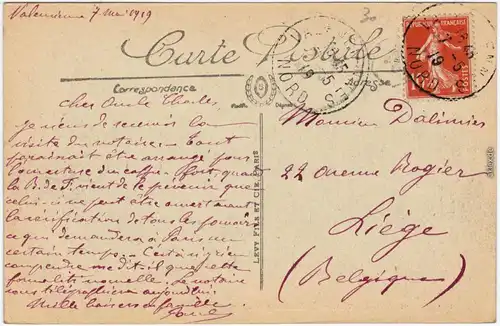 Valenciennes 7 Mai 1919
Carte Postale
Correspondance
Adresse
Cher Oncle Charles
je viens de recevoir la
visite du notaire. Tout
paraissait être arrangé pour
l'ouverture du coffre-fort, quand
la B. de F. vient de le prévenir que
celui-ci ne peut être ouvert avant
la vérification de tous les pouvoirs
ce qui demandera à Paris un
certain temps.
comprendre me dit-il que cette
formalité nouvelle. Le notaire
vous télégraphiera aujourd'hui
Mille baisers en famille
Monsieur Dalimier
22 Avenue Rogier
Liège
(Belgique)
LEVY FILS ET CIE, PARIS
REPUBLIQUE FRANÇAISE
POSTES
NORD
NORD